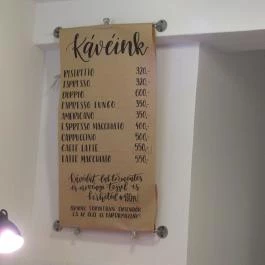 Kávéink
RISTRETTO 320,-
ESPRESSO 320,-
DOPPIO 600,-
ESPRESSO LUNGO 350,-
AMERICANO 350,-
ESPRESSO MACCHIATO 400,-
CAPPUCCINO 500,-
CAFFE LATTE 550,-
LATTE MACCHIATO 550,-
Kávédat laktózmentes
és növényi tejjel is
kérheted